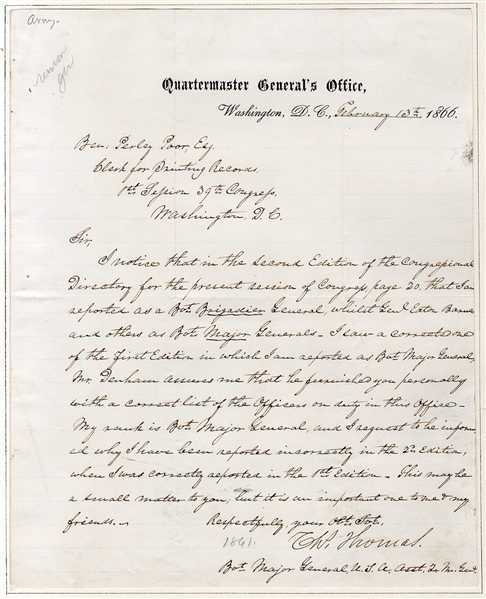 Army.
Quartermaster General's Office,
Washington, D. C., February 13th 1866.
Ben: Perley Poor, Esq
Clerk for Printing Records
1st Session 39th Congress.
Washington, D. C.
Sir,
I notice that in the Second Edition of the Congressional
Directory for the present session of Congress page 20, that I am
reported as a Bvt Brigadier General, whilst Genl Eaton Barnes
and others as Bvt Major Generals - I saw a correct one
of the First Edition in which I am reported as Bvt Major General,
Mr. Denham assures me that he furnished you personally
with a correct list of the Officers on duty in this Office -
My rank is Bvt Major General, and I request to be inform-
ed why I have been reported incorrectly in the 2d Edition,
when I was correctly reported in the 1st Edition - This may be
a small matter to you, but it is an important one to me & my
friends. -
Respectfully, your Obt. Svt.
1861.
Chs. Thomas.
Bvt Major General, U. S. A. Asst. Q. M. Genl.